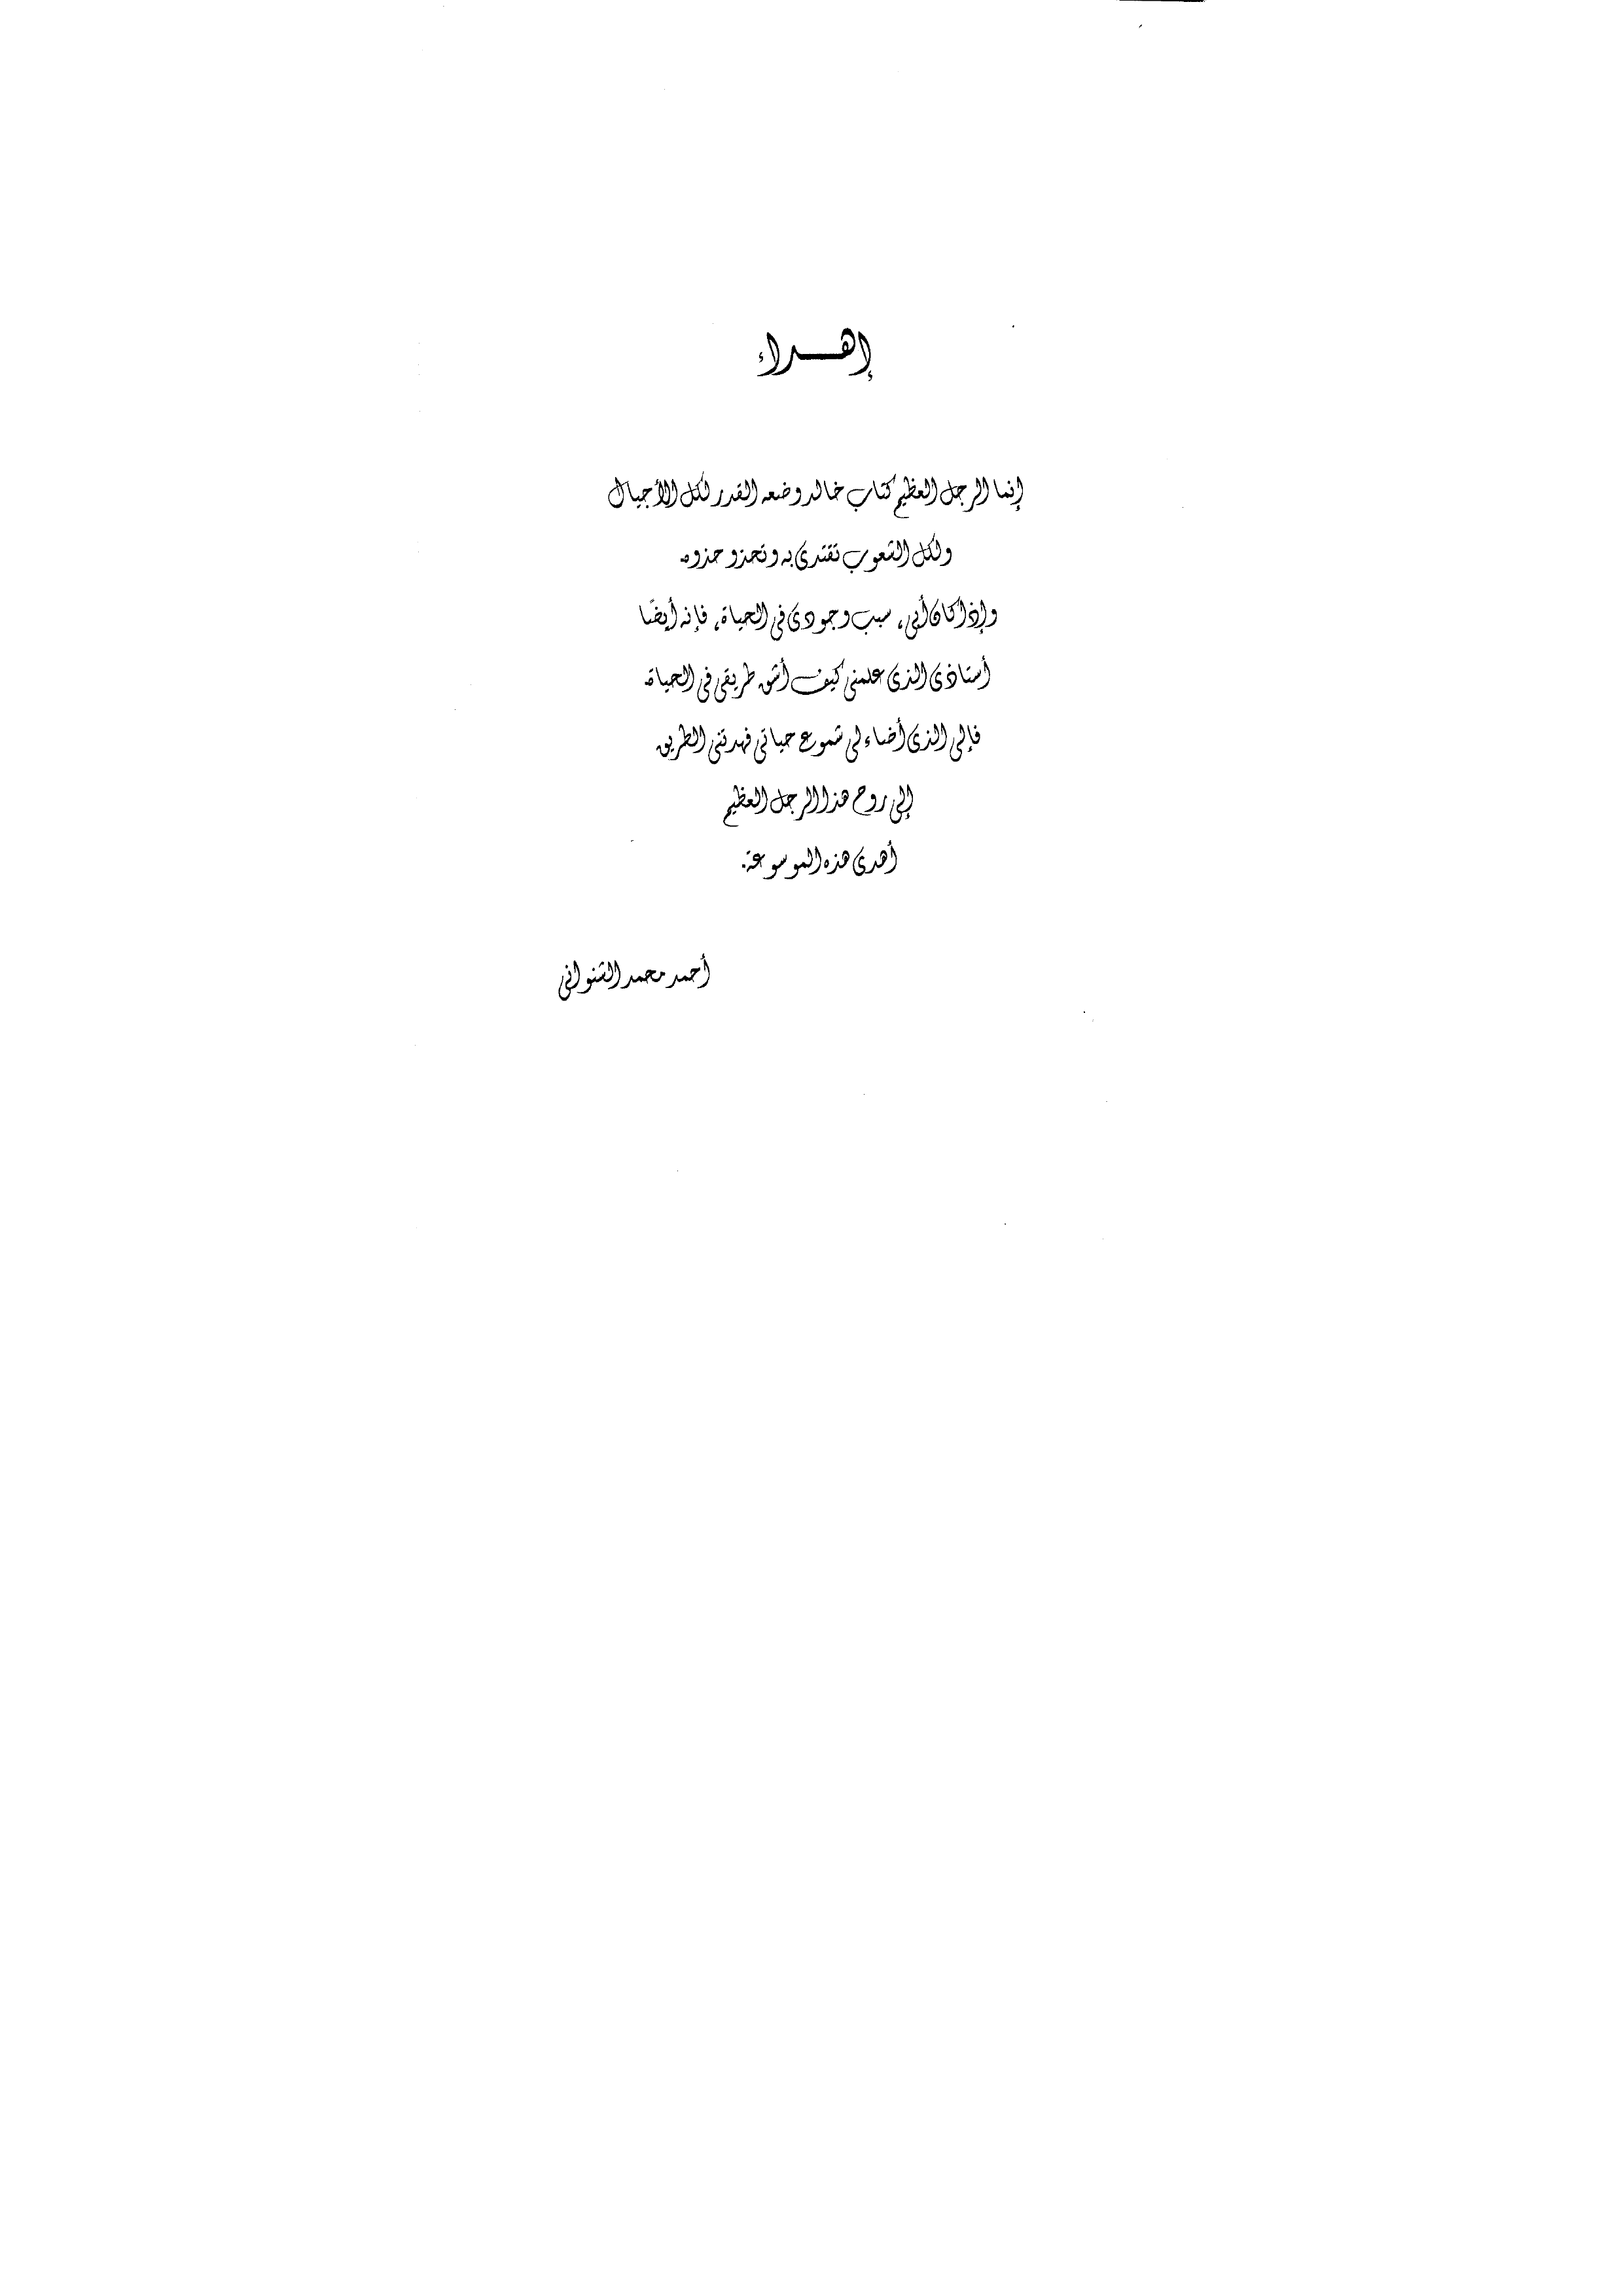 إهـــداء
إنما الرجل العظيم كتاب خالد وضعه القدر لكل الأجيال
ولكل الشعوب تقتدى به وتحذو حذوه
وإذا كان أبى، سبب وجودى فى الحياة، فإنه أيضًا
أستاذى الذى علمنى كيف أشق طريقى فى الحياة
فإلى الذى أضاء لى شموع حياتى فهدتنى الطريق
إلى روح هذا الرجل العظيم
أهدى هذه الموسوعة.
أحمد محمد الشنوانى